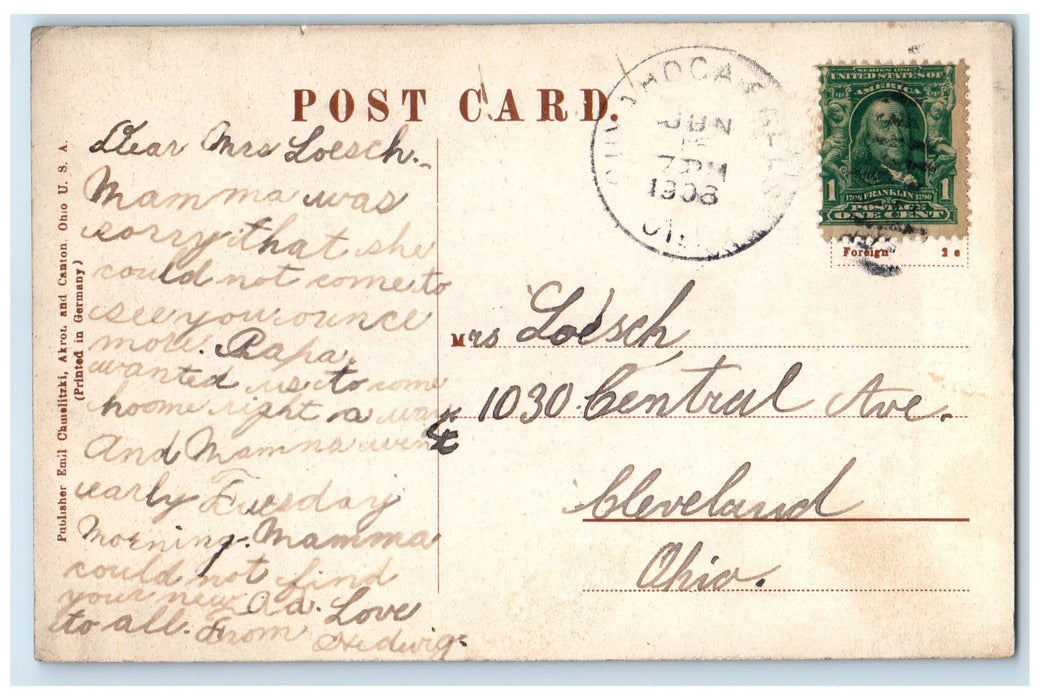 POST CARD.
CUYAHOGA FALLS
JUN
7 PM
1908
OHIO
SERIES 1902
UNITED STATES OF
AMERICA
1 FRANKLIN 1
POSTAGE
ONE CENT
Foreign 2 c
Publisher Emil Chudlitzki, Akron and Canton, Ohio U. S. A.
(Printed in Germany)
Dear Mrs Loesch.
Mamma was
sorry that she
could not come to
see you ounce
more. Papa
wanted us to come
hoome right a way
And Mamma went
early Tuesday
Morning. Mamma
could not find
your new Ad. Love
to all. From Hedwig.
Mrs Loesch,
1030 Central Ave.
Cleveland
Ohio.